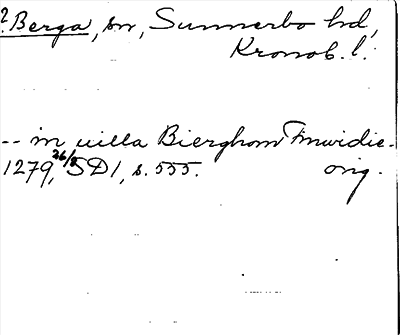 ? Berga, sn, Sunnerbo hd,
Kronob. l.
-- in uilla Bierghom Finwidie-
1279, 26/8 SD 1, s. 555. orig.